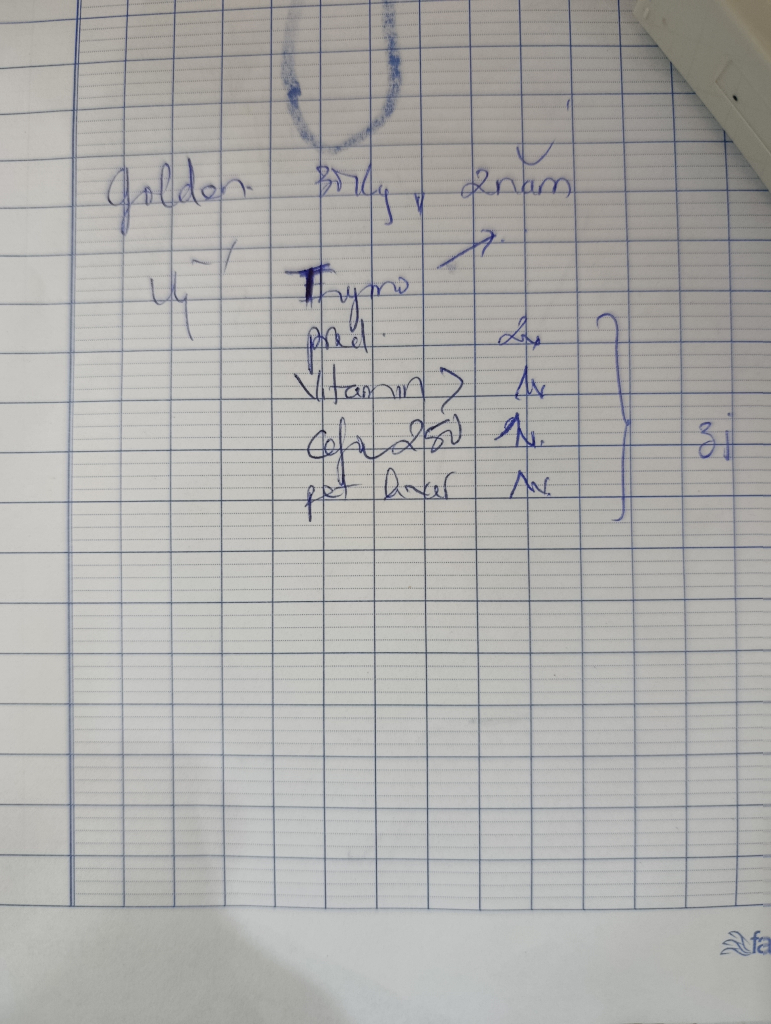 Golden 30kg, 2 năm
Thymo
pred. 2v
Vitamin 1v
Cefa 250 1v.
pet liver 1v.
3j
fa